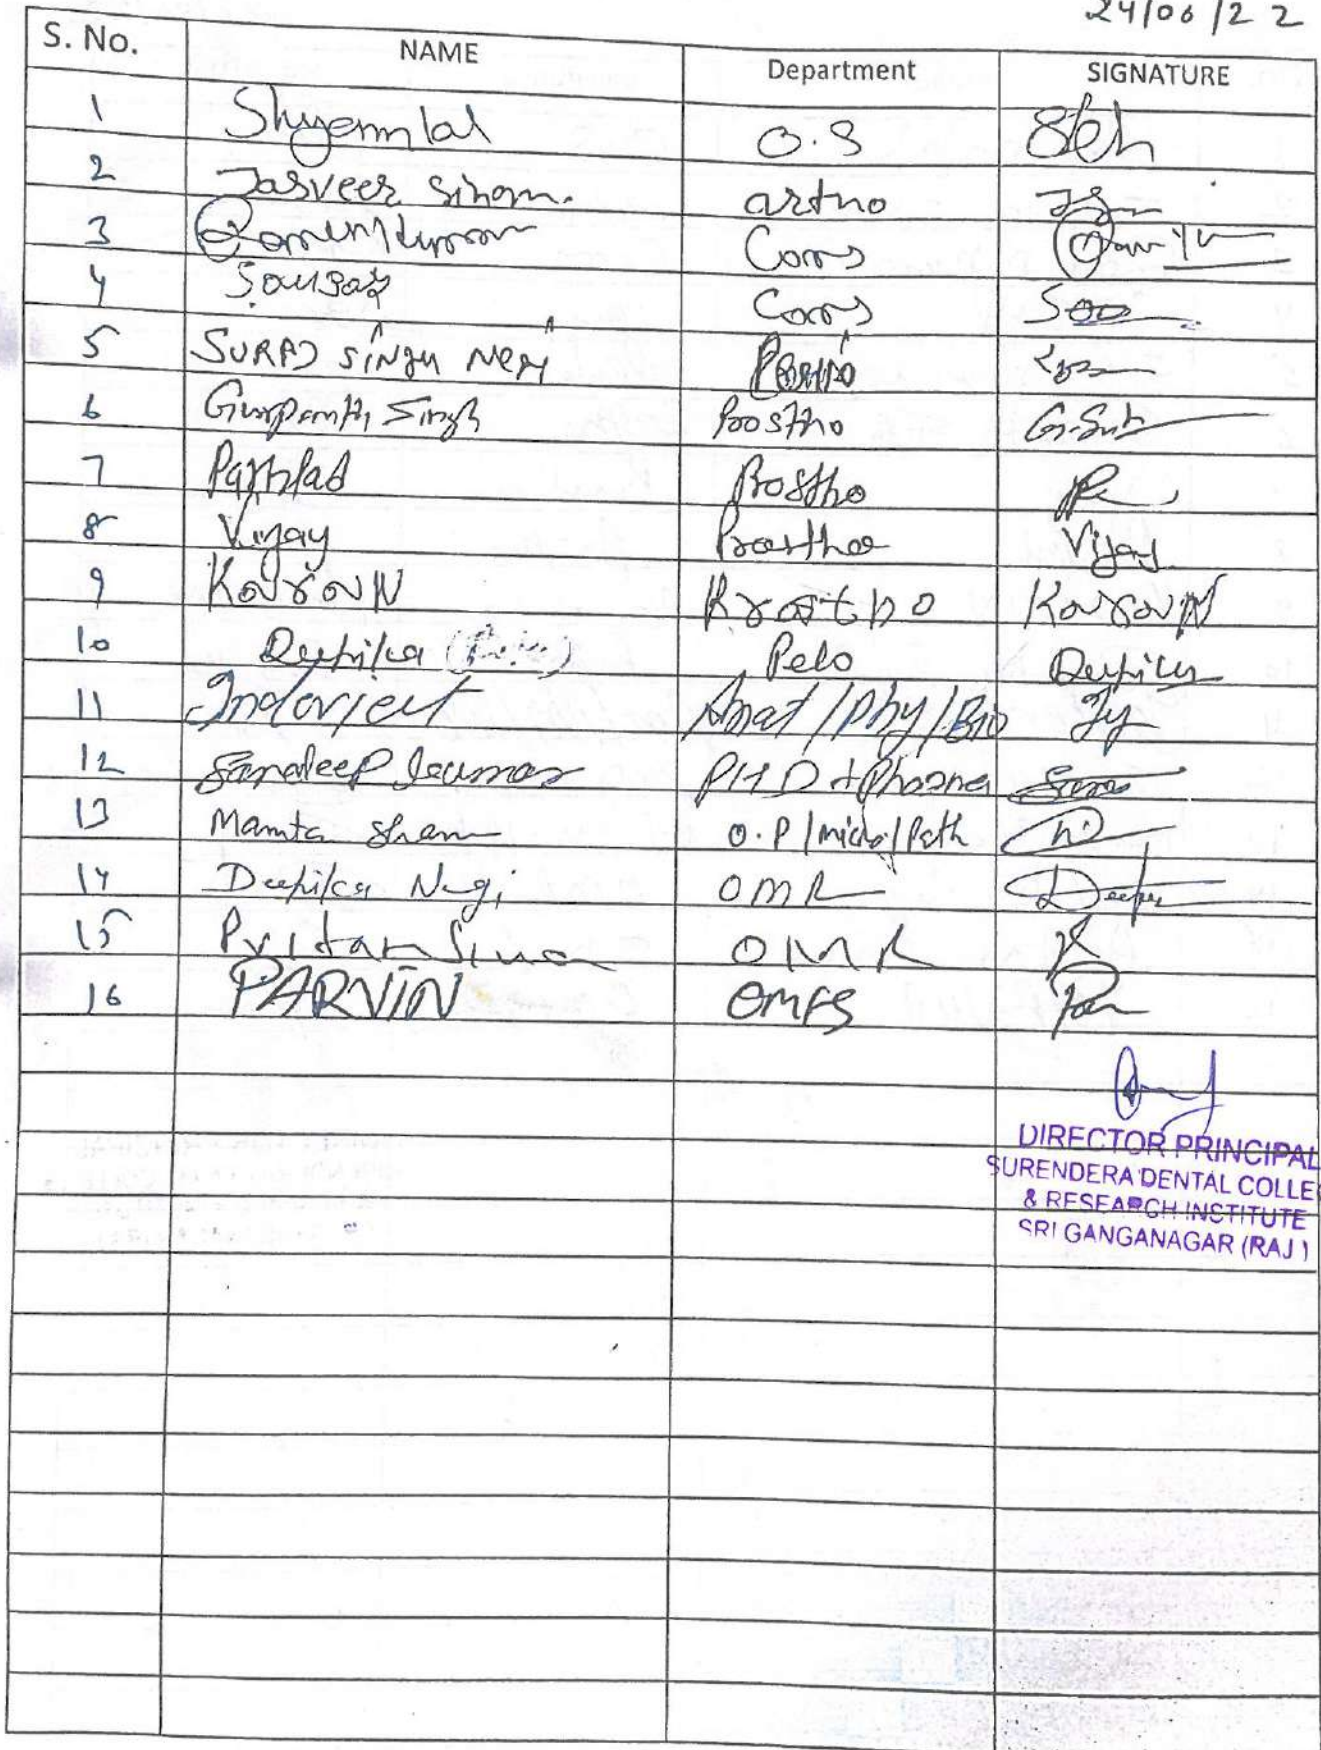 24/06/22
S. No. NAME Department SIGNATURE
1 Shyamlal O.S
2 Jasveer singh. artho
3 Cons
4 Sourav Cons
5 SURAJ SiNGH NEGI Perio
6 Gurpanth Singh Prostho G.Sin
7 Parhlad Prostho
8 Vijay Prostho Vijay
9 KaraN Krostho KaraN
10 Deepika Pedo Deepika
11 Inderjeet Anat/Phy/Bio
12 Sandeep Kumar PHD + Pharma
13 Mamta Sharm O.P/micro/Path
14 Deepika Negi OMR Deepi
15 Pritam Singh OMR
16 PARViN OMFS
DIRECTOR PRINCIPAL
SURENDERA DENTAL COLLE
& RESEARCH INSTITUTE
SRI GANGANAGAR (RAJ)